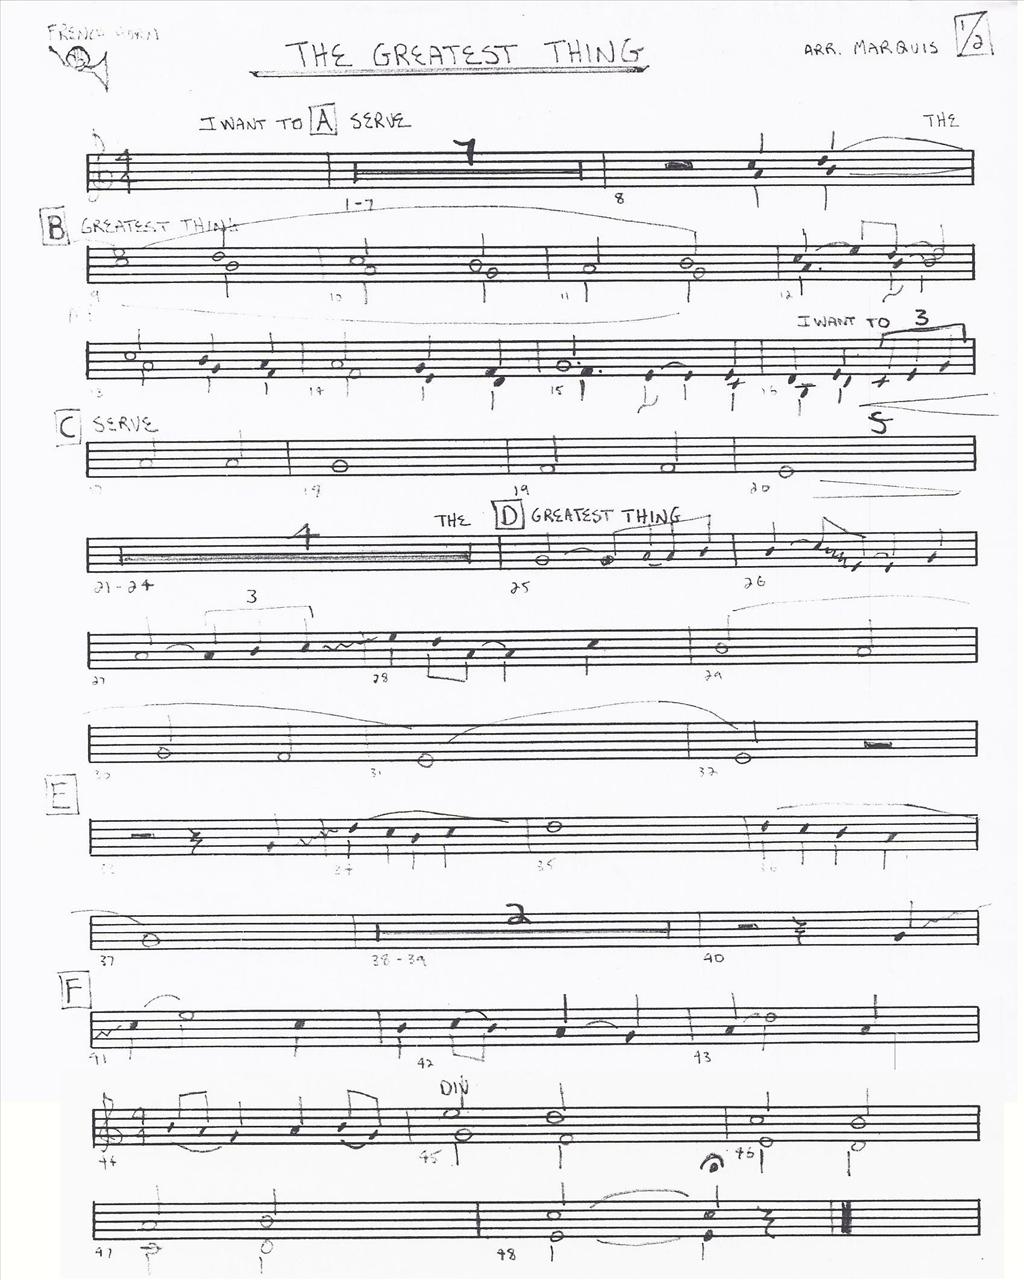 FRENCH HORN
THE GREATEST THING
ARR. MARQUIS
1/2
I WANT TO A SERVE THE
4
4
7
1-7 8
B GREATEST THING
9 10 11 12
I WANT TO 3
13 14 15 16
C SERVE 5
17 18 19 20
4 THE D GREATEST THING
21-24 25 26
3
27 28 29
30 31 32
E
33 34 35 36
2
37 38-39 40
F
41 42 43
DIV
4
4
44 45 46
47 48